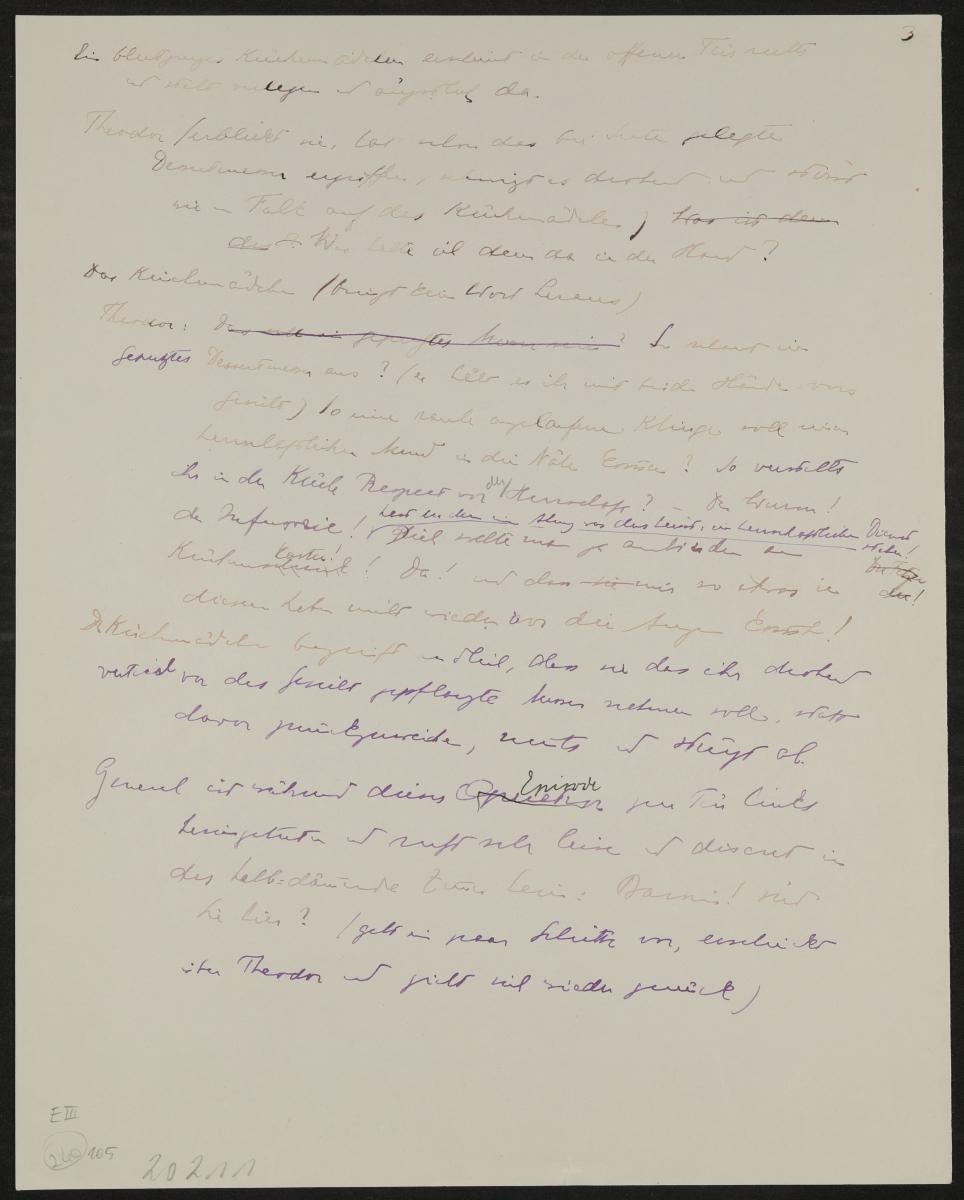 3
Ein blutjunges Küchenmädchen erscheint in der offenen Tür rechts
und steht verlegen und ängstlich da.
Theodor (erblickt sie, hat schon das bei Seite gelegte
Dessertmesser ergriffen, schwingt es drohend und stößt
wie ein Falk auf das Küchenmädchen) Was ist denn
das? Was halte ich denn da in der Hand?
Das Küchenmädchen (bringt kein Wort heraus)
Theodor: Das soll ein geputztes Messer sein? So schaut ein
geputztes Dessertmesser aus? (er hält es ihr mit beiden Händen vors
Gesicht) So eine angelaufene Klinge soll einem
herrschaftlichen Mund in die Nähe kommen? So verstellts
ihr in der Küche Respect vor der Herrschaft? – Du Wurm!
du Infusorie! werd ich dir im Aug vor das heisst, im herrschaftlichen Dienst
stehen!
Dich sollte man ja anbinden an
Küchenkastel! Da! und dass mir so etwas in
du!
diesem Leben nicht wieder vor die Augen kommt!
Das Küchenmädchen begreift endlich, dass sie das ihr drohend
vertical vor das Gesicht gepflanzte Messer nehmen soll, statt
davor zurückzuweichen, und stürzt ab.
General ist während dieser Episode zur Tür links
hereingetreten und ruft sehr leise und discret in
das halb-dämmrige Zimmer herein: Baronin! sind
Sie hier? (geht ein paar Schritte vor, erschrickt
über Theodor und zieht sich wieder zurück)
E III
240 105
20211